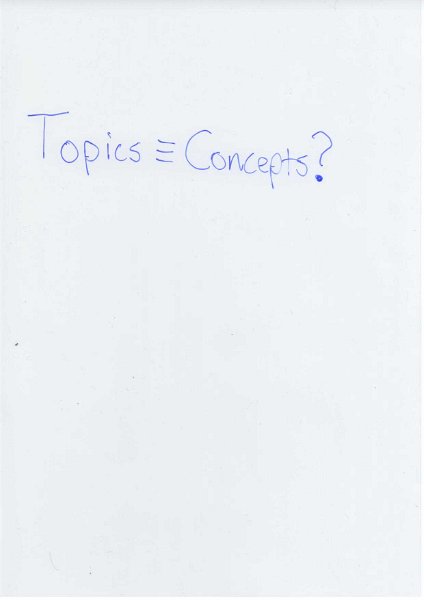 Topics ≡ Concepts?